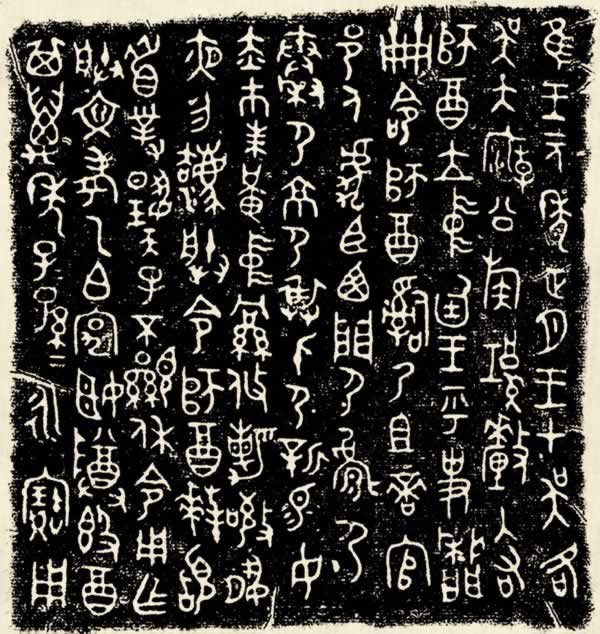 隹王元年正月王才吳各
吳大廟公族釐入右
師酉立中廷王乎史
冊命師酉乃且啻官
邑人虎臣西門尸尸
秦尸京尸身尸新易女
赤巿朱黃中攸勒敬夙
夜勿灋朕令師酉拜𩒨
首對揚天子不顯休令用乍
朕文考乙白宄姬𣪘酉
其萬年子子孫孫永寶用